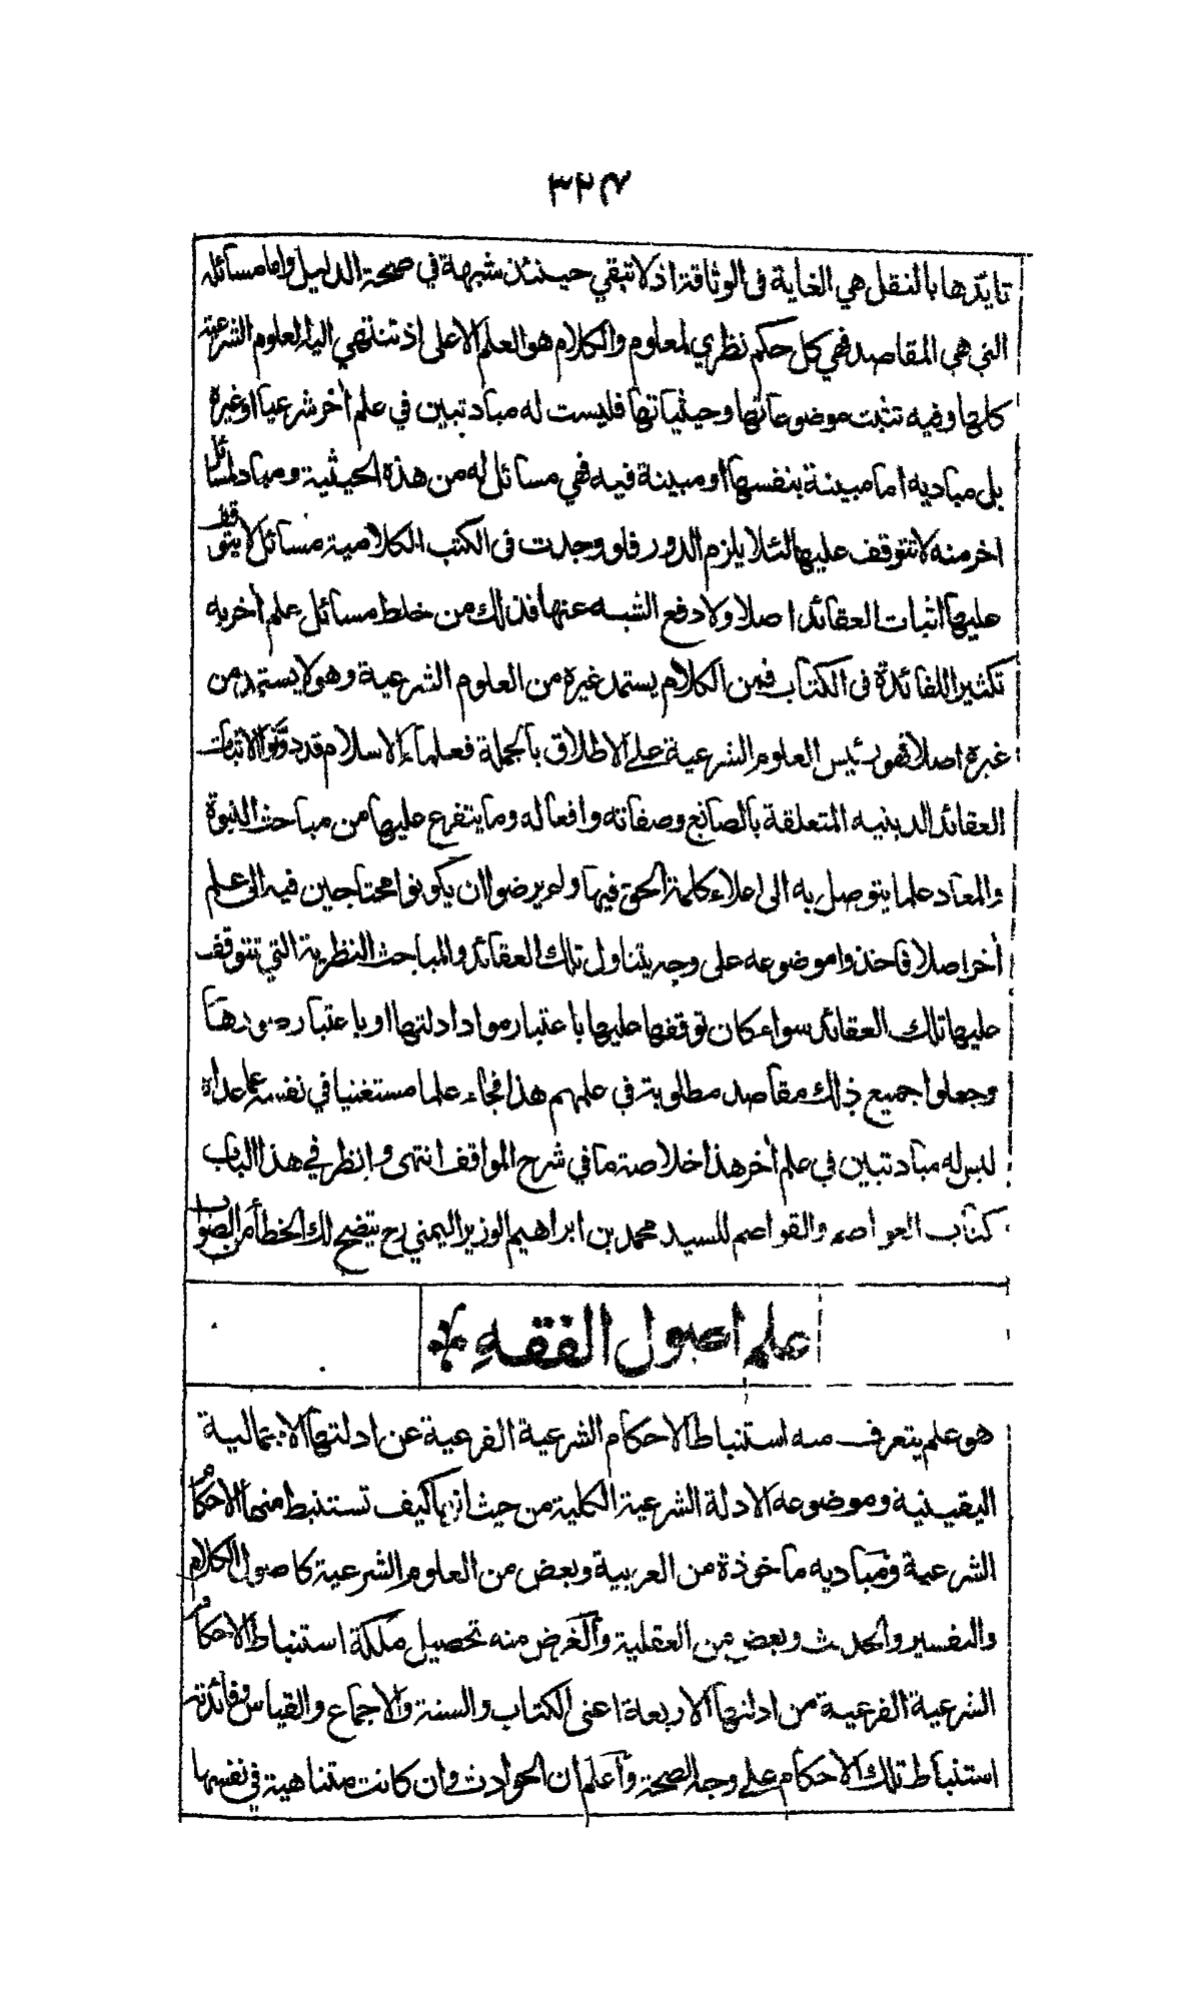 ٣٢٧
تايّدها بالنقل هي الغاية فى الوثاقة اذ لا تبقي حينئذ شبهة في صحة الدليل واما مسائله
التي هي المقاصد فهي كل حكم نظري لمعلوم والكلام هو العلم الاعلى اذ تنتهي اليه العلوم الشرعية
كلها وفيه تثبت موضوعاتها وحيثياتها فليست له مباد تبين في علم أخر شرعيا او غيره
بل مباديه اما مبينة بنفسها او مبينة فيه فهي مسائل له من هذه الحيثية ومباد لمسائل
اخر منه لا تتوقف عليها لئلا يلزم الدور فلو وجدت فى الكتب الكلامية مسائل لا يتوقف
عليها اثبات العقائد اصلا ولا دفع الشبه عنها فذلك من خلط مسائل علم أخر به
تكثيرا للفائدة فى الكتاب فمن الكلام يستمد غيره من العلوم الشرعية وهو لا يستمد من
غيره اصلا فهو رئيس العلوم الشرعية على الاطلاق بالجملة فعلماء الاسلام قد دونوا لاثبات
العقائد الدينيه المتعلقة بالصانع وصفاته وافعاله وما يتفرع عليها من مباحث النبوة
والمعاد علما يتوصل به الى اعلاء كلمة الحق فيها ولم يرضوا ان يكونوا محتاجين فيه الى علم
أخر اصلا فاخذوا موضوعه على وجه يتناول تلك العقائد والمباحث النظرية التي تتوقف
عليها تلك العقائد سواء كان توقفها عليها باعتبار مواد ادلتها او باعتبار صورها
وجعلوا جميع ذلك مقاصد مطلوبة في علمهم هذا فجاء علما مستغنيا في نفسه عما عداه
ليس له مباد تبين في علم أخر هذا خلاصة ما في شرح المواقف انتهى وانظر في هذا الباب
كتاب العواصم والقواصم للسيد محمد بن ابراهيم الوزير اليمني رح يتضح لك الخطأ من الصواب
علم اصول الفقه
هو علم يتعرف منه استنباط الاحكام الشرعية الفرعية عن ادلتها الاجمالية
اليقينية وموضوعه الادلة الشرعية الكلية من حيث انها كيف تستنبط منها الاحكام
الشرعية ومباديه ماخوذة من العربية وبعض من العلوم الشرعية كاصول الكلام
والتفسير والحديث وبعض من العقلية والغرض منه تحصيل ملكة استنباط الاحكام
الشرعية الفرعية من ادلتها الاربعة اعنى الكتاب والسنة والاجماع والقياس وفائدته
استنباط تلك الاحكام على وجه الصحة واعلم ان الحوادث وان كانت متناهية في نفسها